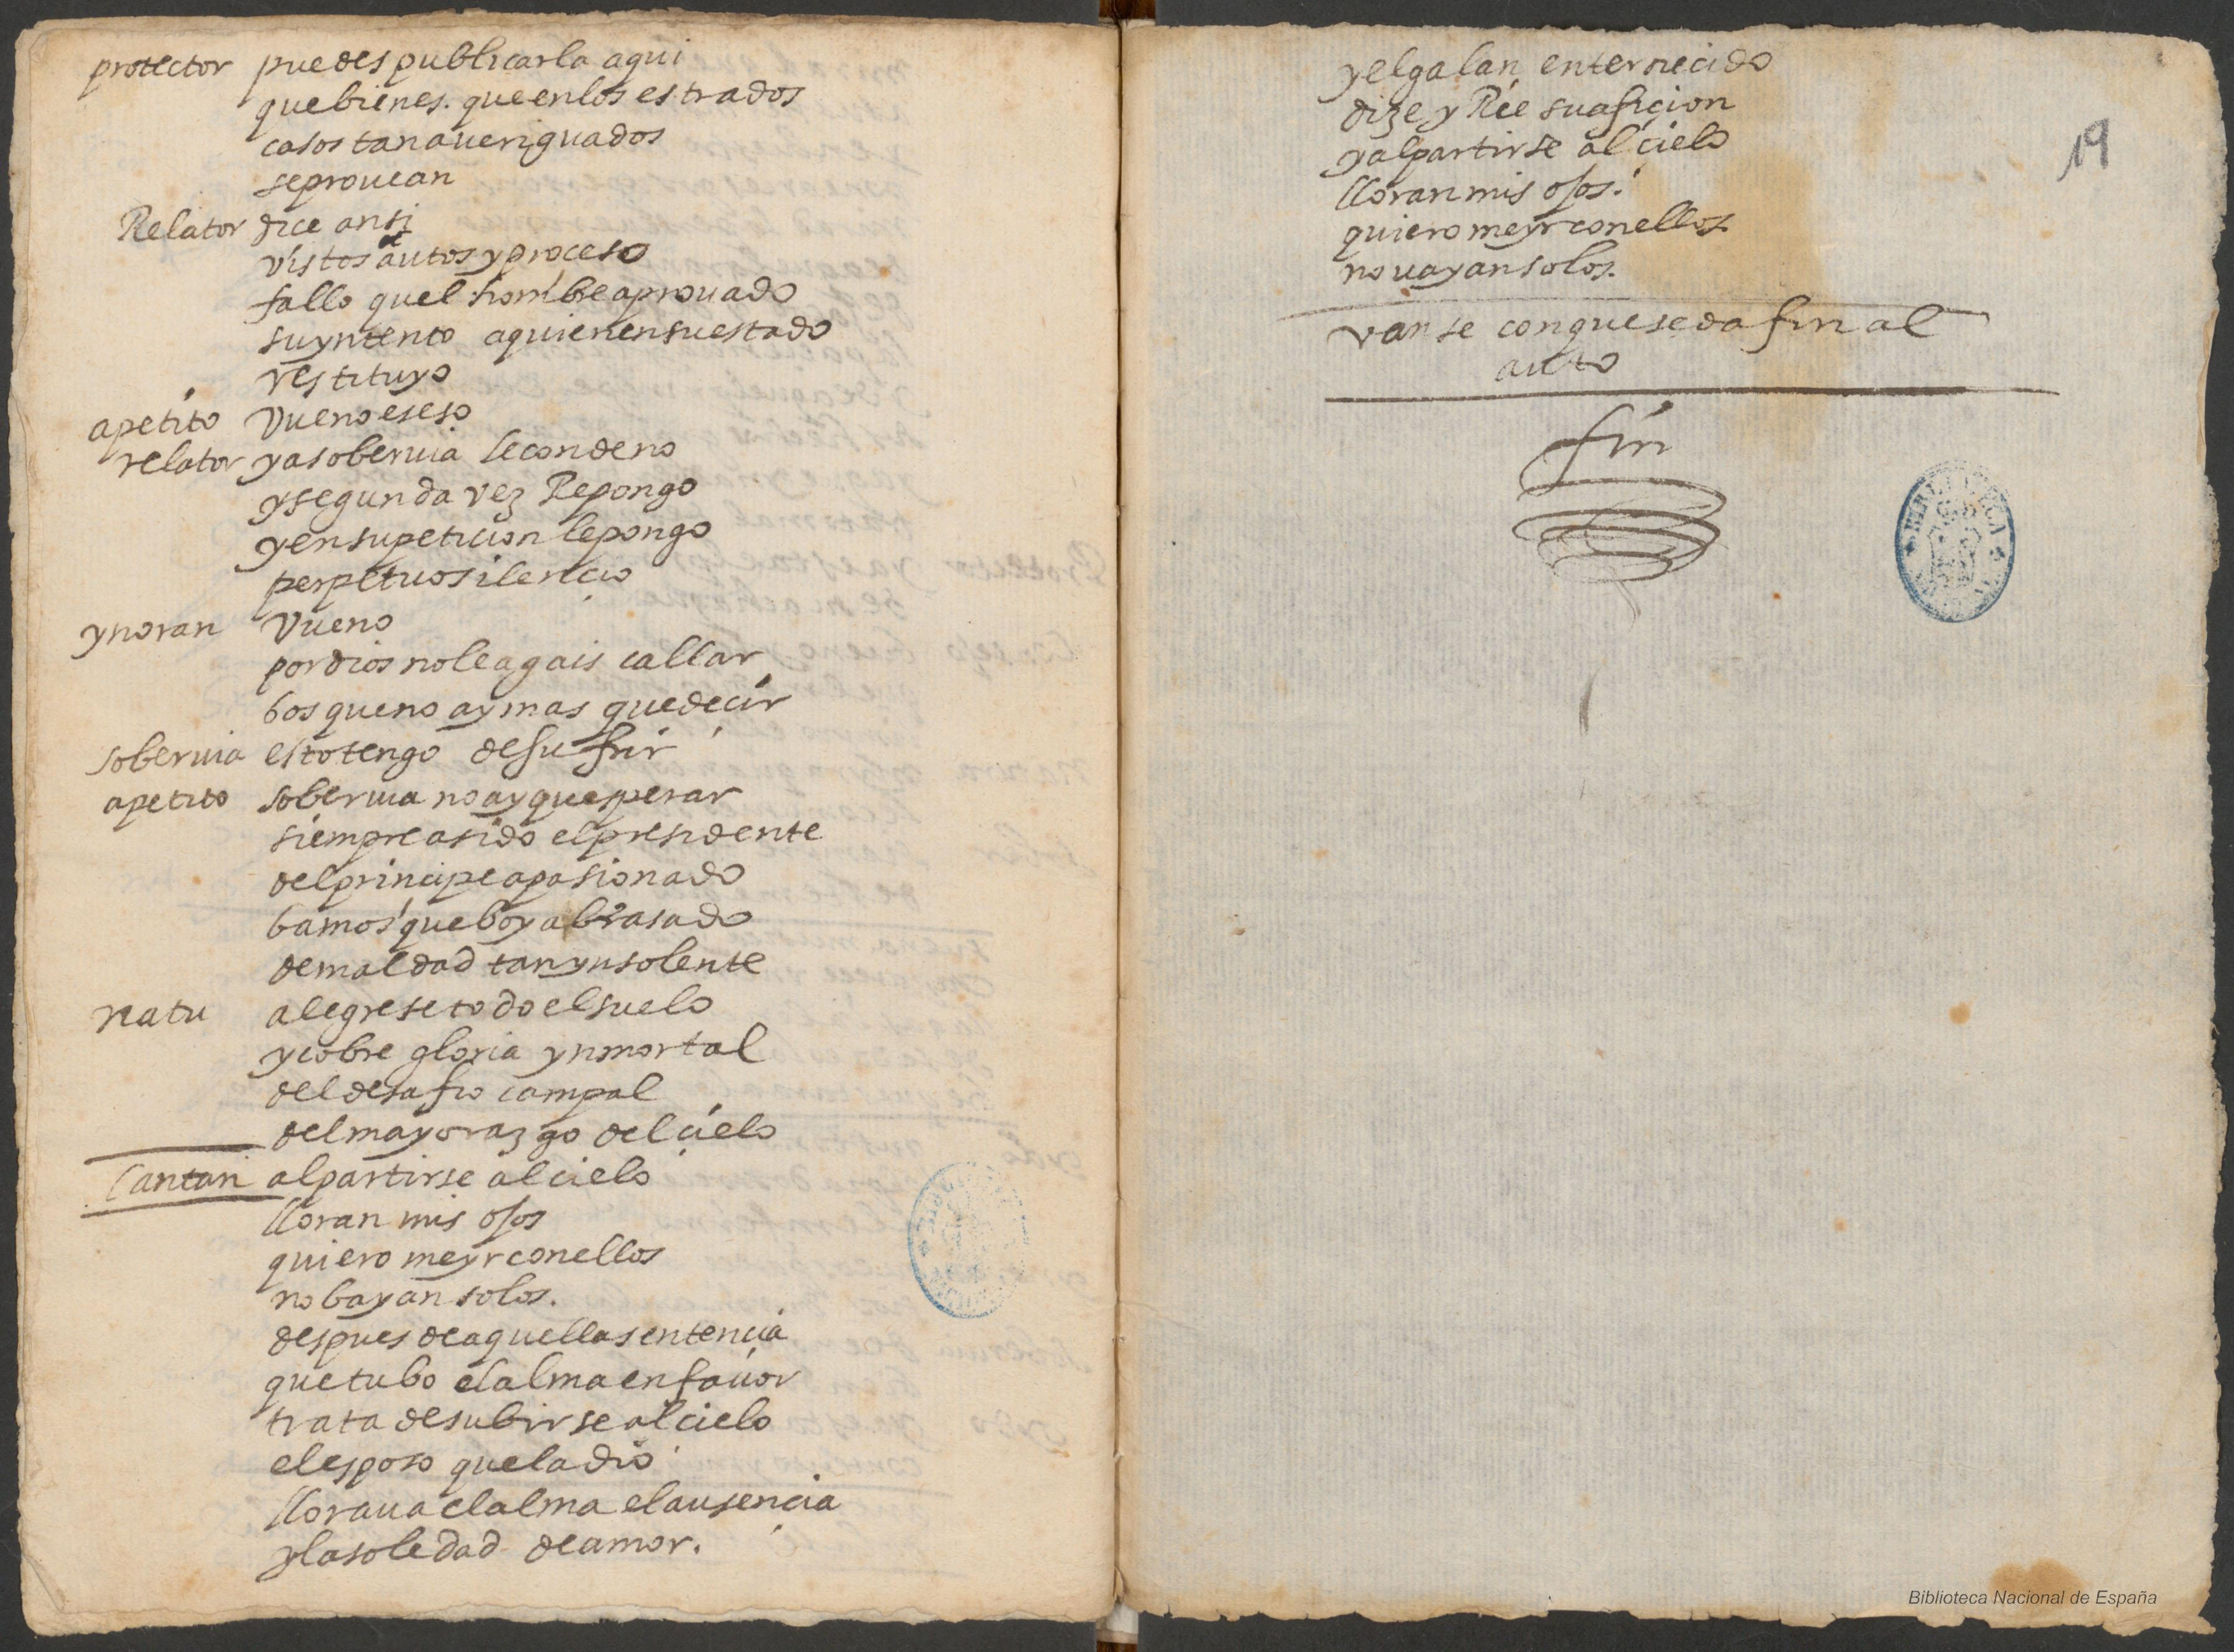 protector puedes publicarla aqui
que bien es. que en los estrados
casos tan aueriguados
se prouean
Relator dice ansi
vistos autos y proceso
fallo quel hombre aprouado
su yntento a quien en su estado
restituyo
apetito Vueno es eso
relator y a soberuia le condeno
y segunda vez Repongo
y en su peticion le pongo
perpetuo silencio
ynoran Vueno
por dios no le agais callar
bos que no ay mas que decir
soberuia esto tengo de sufrir
apetito soberuia no ay que sperar
siempre a sido el presidente
del principe apasionado
bamos que boy abrasado
de maldad tan ynsolente
natu alegrese todo el suelo
y cobre gloria ynmortal
del desafio campal
del mayorazgo del cielo
Cantan al partirse al cielo
lloran mis ojos
quiero me yr con ellos
no bayan solos.
despues de aquella sentencia
que tubo el alma en fauor
trata de subirse al cielo
el esposo que la dio
lloraua el alma el ausencia
y la soledad de amor.
y el galan enternecido
dize y Rie su aficion
y al partirse al cielo
lloran mis ojos.
quiero me yr con ellos
no vayan solos.
19
vanse con que se da fin al
auto
fin
Biblioteca Nacional de España